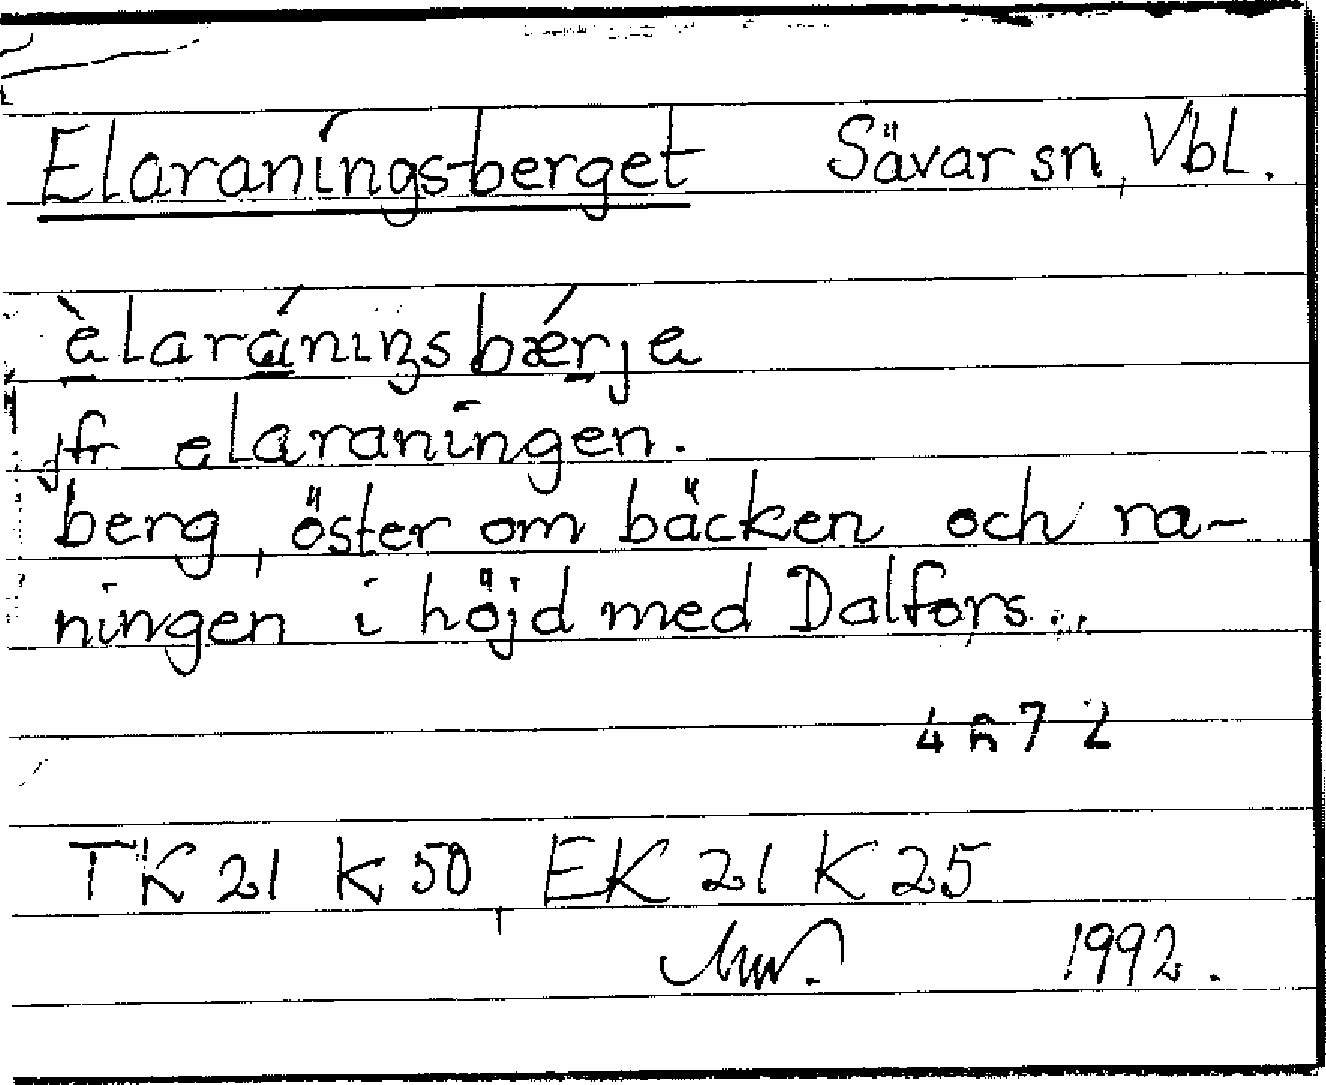 Elaranings-berget Sävar sn, Vbl.
èlaránıŋsbǽrje
jfr elaraningen.
berg, öster om bäcken och ra-
ningen i höjd med Dalfors...
TK 21 K 50, EK 21 K 25
1992.